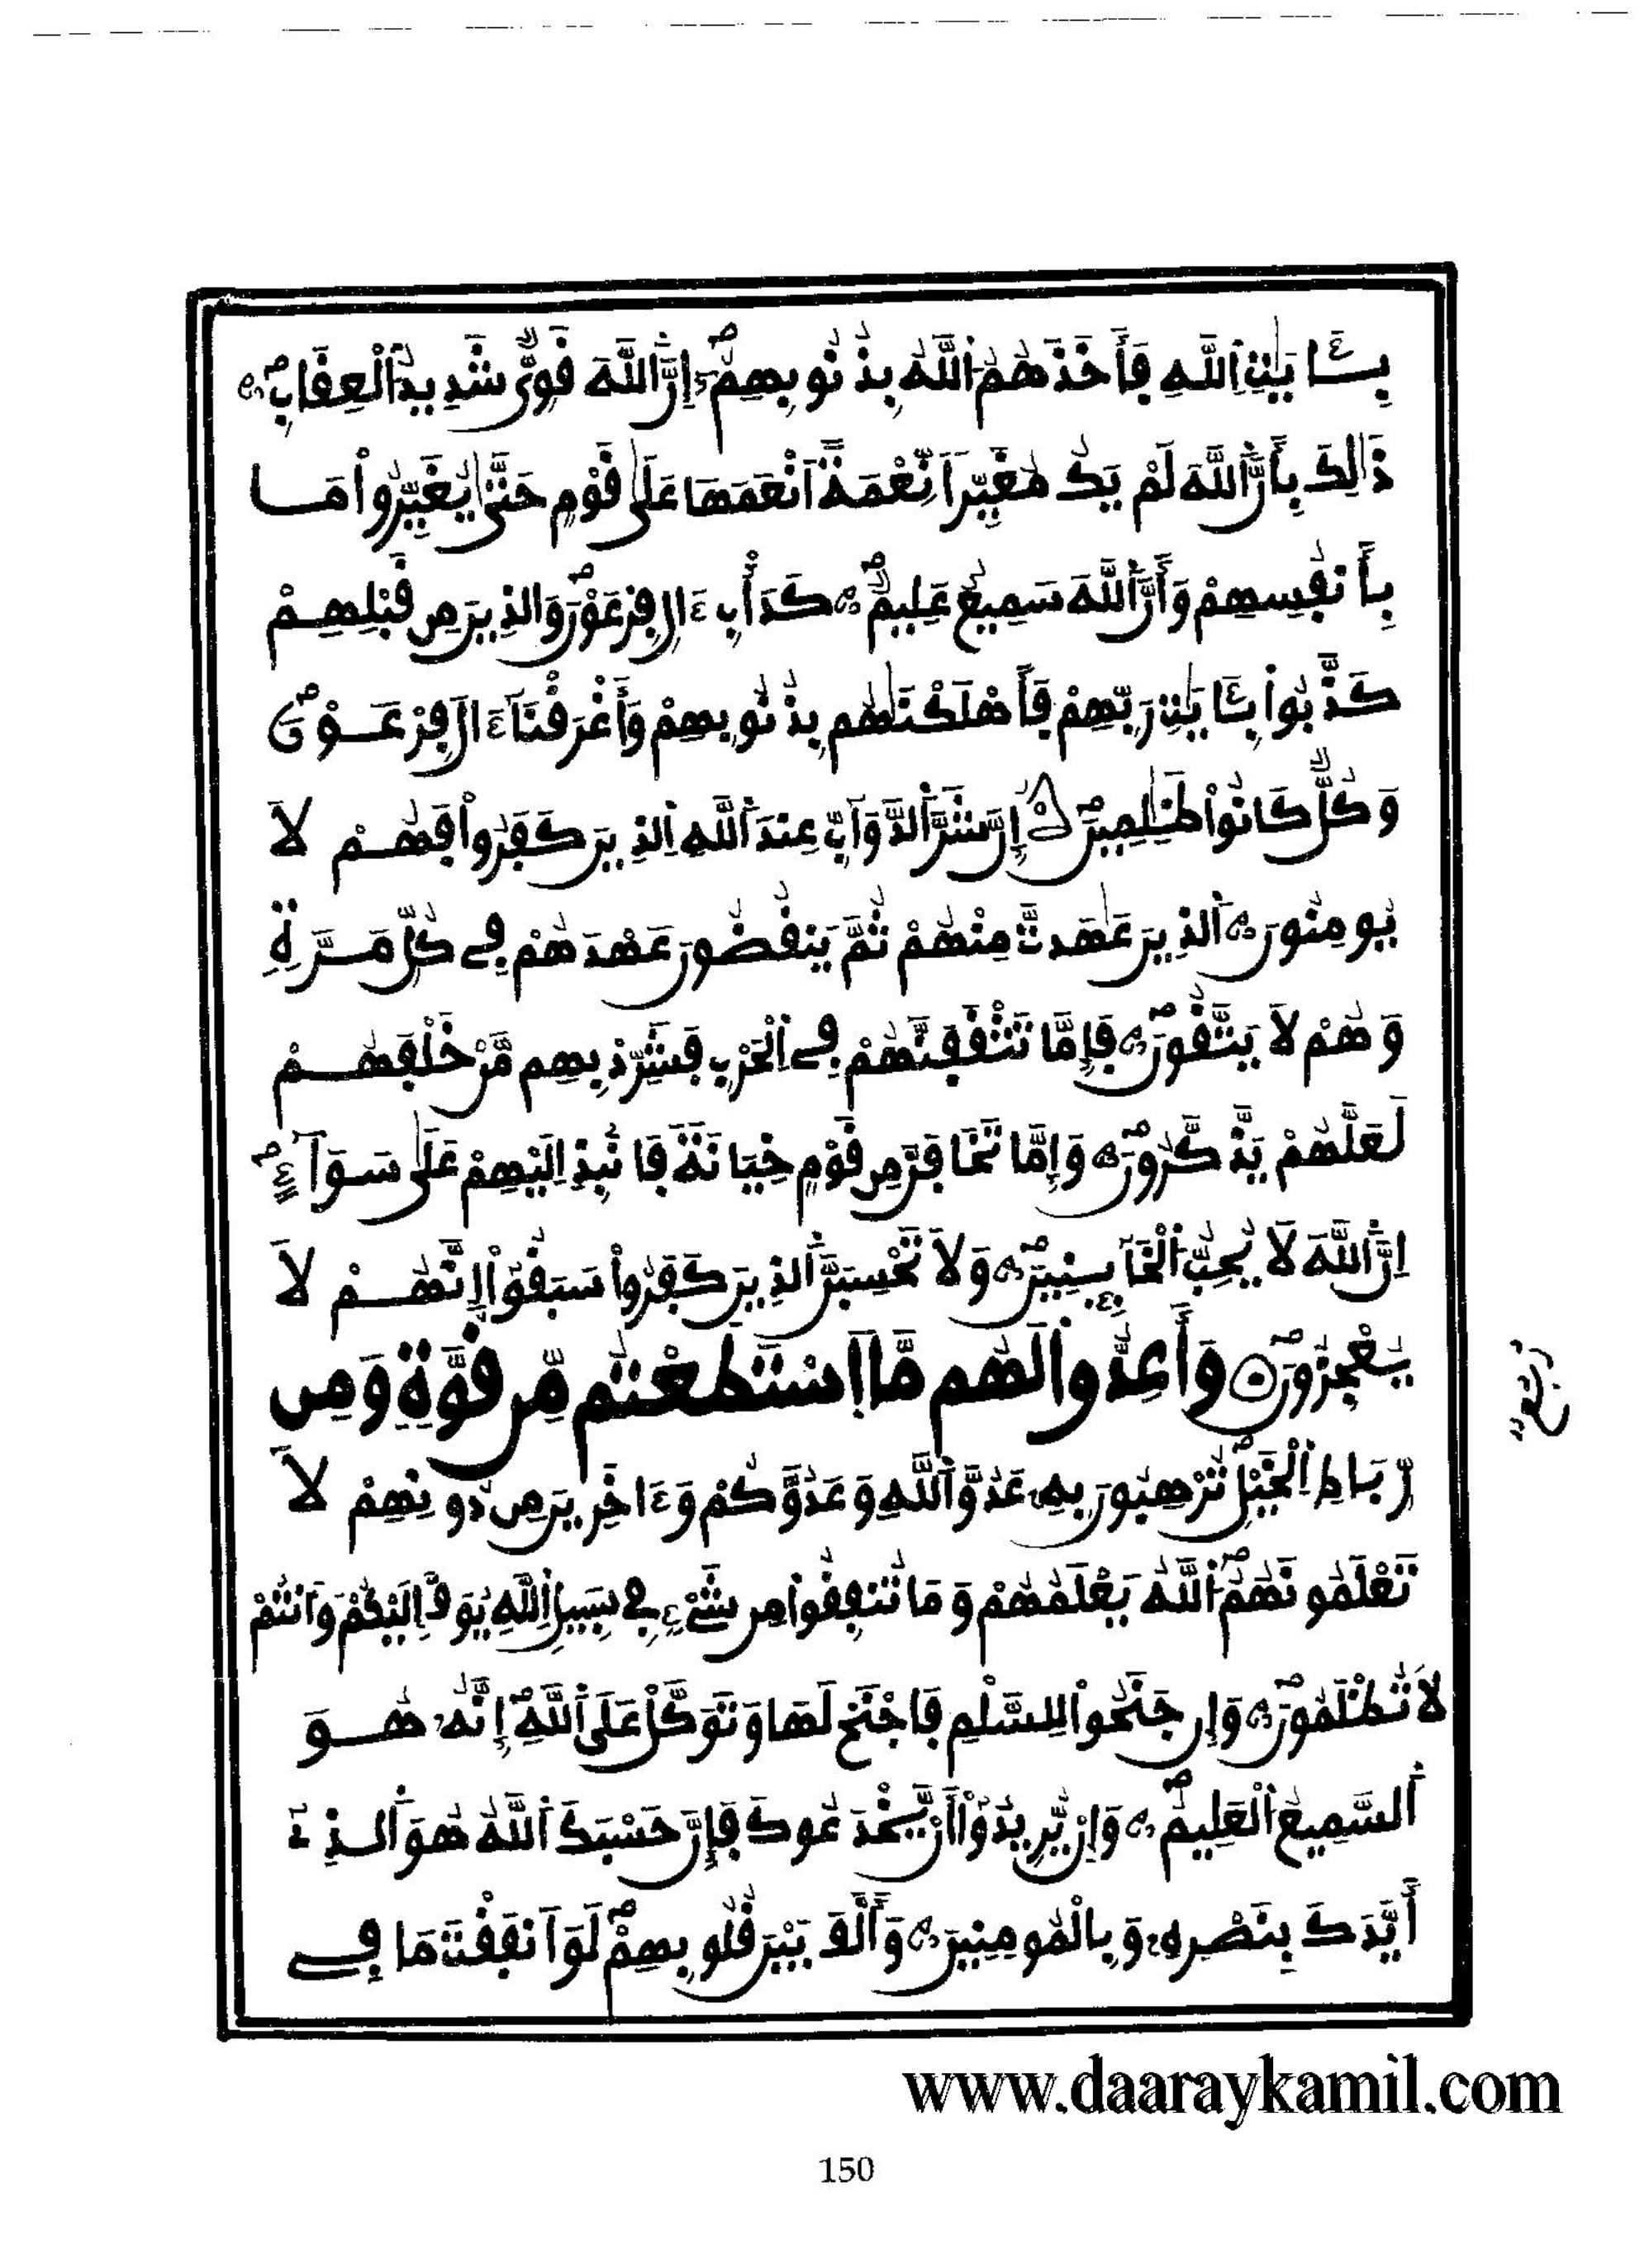 بِـَٔايَٰتِ اِ۬للَّهِ فَأَخَذَهُمُ اُ۬للَّهُ بِذُنُوبِهِمُۥٓ إِنَّ اَ۬للَّهَ قَوِيّٞ شَدِيدُ اُ۬لْعِقَابِ
ذَٰلِكَ بِأَنَّ اَ۬للَّهَ لَمْ يَكُ مُغَيِّراٗ نِّعْمَةً اَنْعَمَهَا عَلَىٰ قَوْمٍ حَتَّىٰ يُغَيِّرُواْ مَا
بِأَنفُسِهِمْ وَأَنَّ اَ۬للَّهَ سَمِيعٌ عَلِيمٞ كَدَأْبِ ءَالِ فِرْعَوْنَ وَالذِينَ مِن قَبْلِهِمْ
كَذَّبُواْ بِـَٔايَٰتِ رَبِّهِمْ فَأَهْلَكْنَٰهُم بِذُنُوبِهِمْ وَأَغْرَقْنَآ ءَالَ فِرْعَوْنَ
وَكُلّٞ كَانُواْ ظَٰلِمِينَ إِنَّ شَرَّ اَ۬لدَّوَآبِّ عِندَ اَ۬للَّهِ اِ۬لذِينَ كَفَرُواْ فَهُمْ لَا
يُومِنُونَ اَ۬لذِينَ عَٰهَدتَّ مِنْهُمْ ثُمَّ يَنقُضُونَ عَهْدَهُمْ فِي كُلِّ مَرَّةٖ
وَهُمْ لَا يَتَّقُونَ فَإِمَّا تَثْقَفَنَّهُمْ فِي اِ۬لْحَرْبِ فَشَرِّدْ بِهِم مَّنْ خَلْفَهُمْ
لَعَلَّهُمْ يَذَّكَّرُونَ وَإِمَّا تَخَافَنَّ مِن قَوْمٍ خِيَانَةٗ فَانۢبِذِ اِلَيْهِمْ عَلَىٰ سَوَآءٍ
اِنَّ اَ۬للَّهَ لَا يُحِبُّ اُ۬لْخَآئِنِينَ وَلَا تَحْسِبَنَّ اَ۬لذِينَ كَفَرُواْ سَبَقُوٓاْ إِنَّهُمْ لَا
يُعْجِزُونَ وَأَعِدُّواْ لَهُم مَّا اَ۪سْتَطَعْتُم مِّن قُوَّةٖ وَمِن
رِّبَاطِ اِ۬لْخَيْلِ تُرْهِبُونَ بِهِۦ عَدُوَّ اَ۬للَّهِ وَعَدُوَّكُمْ وَءَاخَرِينَ مِن دُونِهِمْ لَا
تَعْلَمُونَهُمُ اُ۬للَّهُ يَعْلَمُهُمْ وَمَا تُنفِقُواْ مِن شَےْءٖ فِي سَبِيلِ اِ۬للَّهِ يُوَفَّ إِلَيْكُمْ وَأَنتُمْ
لَا تُظْلَمُونَ وَإِن جَنَحُواْ لِلسَّلْمِ فَاجْنَحْ لَهَا وَتَوَكَّلْ عَلَى اَ۬للَّهِ إِنَّهُۥ هُوَ
اَ۬لسَّمِيعُ اُ۬لْعَلِيمُ وَإِنْ يُّرِيدُوٓاْ أَنْ يَّخْدَعُوكَ فَإِنَّ حَسْبَكَ اَ۬للَّهُ هُوَ اَ۬لذِےٓ
أَيَّدَكَ بِنَصْرِهِۦ وَبِالْمُومِنِينَ وَأَلَّفَ بَيْنَ قُلُوبِهِمْ لَوَ اَنفَقْتَ مَا فِي
www.daaraykamil.com
150